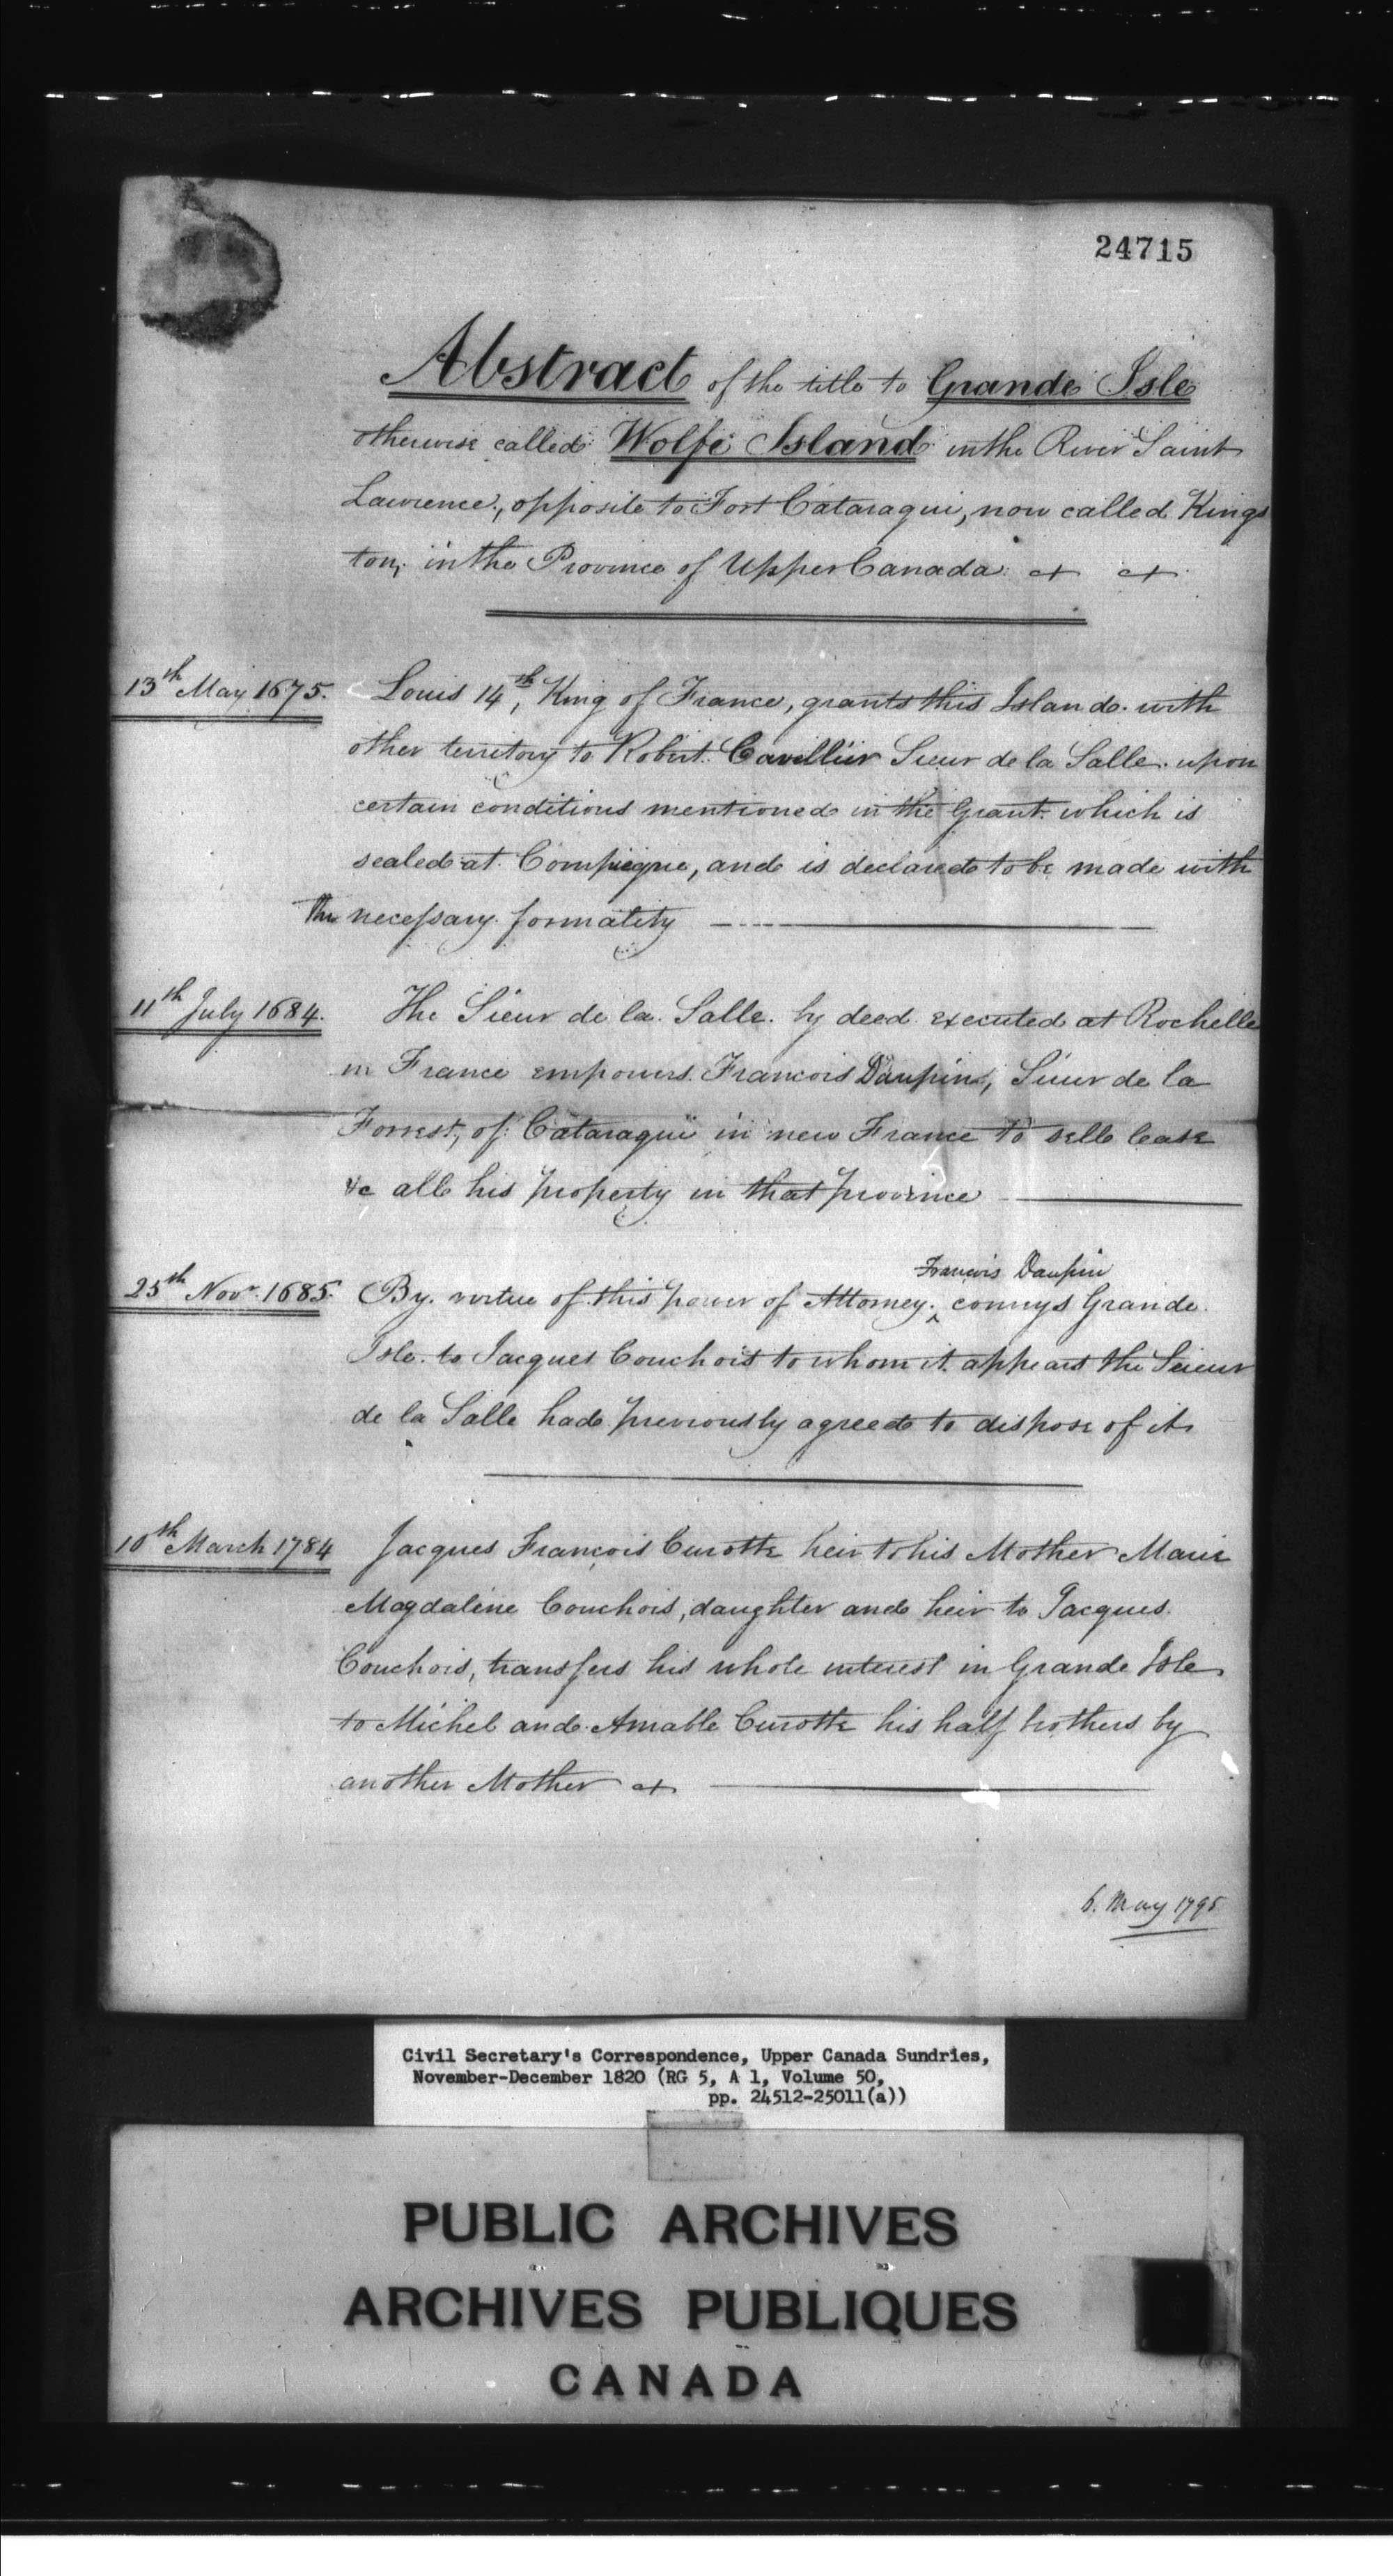 24715
Abstract of the title to Grande Isle
otherwise called Wolfe Island in the River Saint
Lawrence, opposite to Fort Cataraqui, now called Kings
ton, in the Province of Upper Canada
13th May 1675. Louis 14th, King of France, grants this Island with
other territory to Robert Cavillier Sieur de la Salle upon
certain conditions mentioned in the Grant which is
sealed at Compiegne, and is declared to be made with
the necessary formality
11th July 1684. The Sieur de la Salle by deed executed at Rochelle
in France empowers Francois Daupin, Sieur de la
Forrest, of Cataraqui in new France to sell lease
&c all his property in that province
Francois Daupin
25th Novr. 1685. By virtue of this power of Attorney, ^ conveys Grande
Isle to Jacques Couchois to whom it appears the Sieur
de la Salle had previously agreed to dispose of it
10th March 1784 Jacques François Curotte heir to his Mother Marie
Magdaléne Couchois, daughter and heir to Jacques
Couchois, transfers his whole interest in Grande Isle
to Michel and Amable Curotte his half brothers by
another Mother
6. May 1795
Civil Secretary's Correspondence, Upper Canada Sundries,
November-December 1820 (RG 5, A 1, Volume 50,
pp. 24512-25011(a))
PUBLIC ARCHIVES
ARCHIVES PUBLIQUES
CANADA